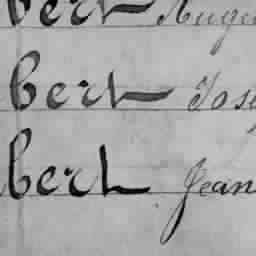 bert Augu
bert Jose
bert Jean